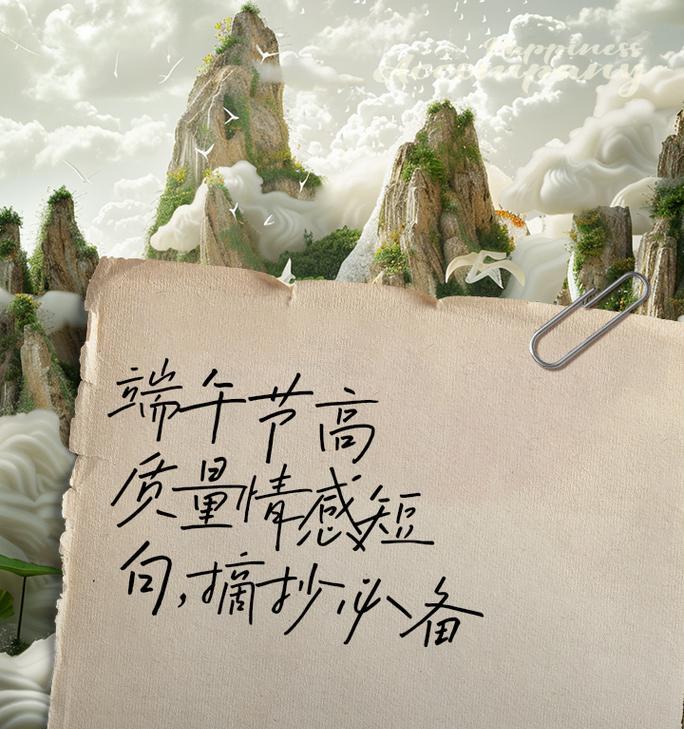 Happiness
Accompany
端午节高
质量情感短
句,摘抄必备